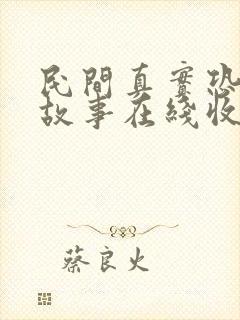 民間真實恐
故事在綫收
蔡良火